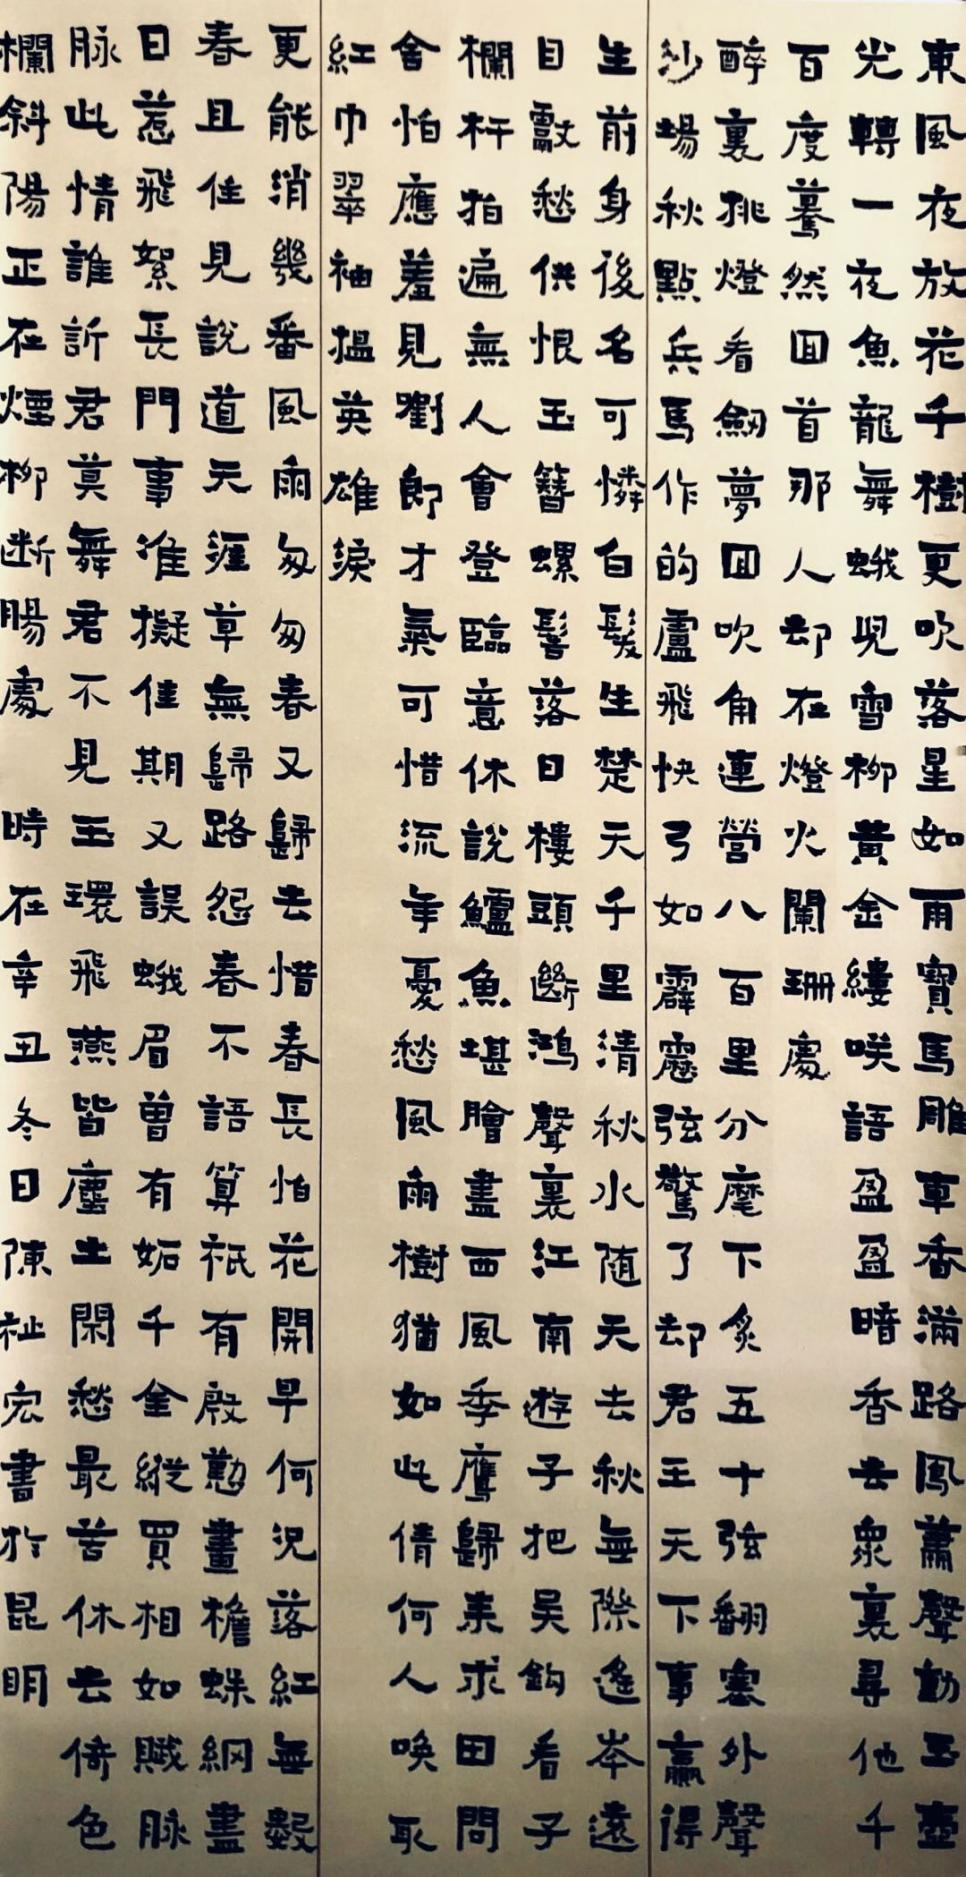 東風夜放花千樹更吹落星如雨寶馬雕車香滿路鳳蕭聲動玉壺
光轉一夜魚龍舞蛾兒雪柳黃金縷咲語盈盈暗香去衆裏尋他千
百度驀然回首那人却在燈火闌珊處
醉裏挑燈看劍夢回吹角連營八百里分麾下炙五十弦翻塞外聲
沙場秋點兵馬作的盧飛快弓如霹靂弦驚了却君王天下事贏得
生前身後名可憐白髮生楚天千里清秋水随天去秋無際遙岑遠
目獻愁供恨玉簪螺髻落日樓頭斷鴻聲裏江南遊子把吳鈎看子
欄杆拍遍無人會登臨意休說鱸魚堪膾盡西風季鷹歸來求田問
舍怕應羞見劉郎才氣可惜流年憂愁風雨樹猶如此倩何人喚取
紅巾翠袖揾英雄淚
更能消幾番風雨匆匆春又歸去惜春長怕花開早何況落紅無數
春且住見說道天涯草無歸路怨春不語算祇有殷勤畫檐蛛網盡
日惹飛絮長門事准擬佳期又誤蛾眉曾有妬千金縱買相如賦脉
脉此情誰訴君莫舞君不見玉環飛燕皆塵土閑愁最苦休去倚色
欄斜陽正在煙柳斷腸處 時在辛丑冬日陳祉宏書於昆明